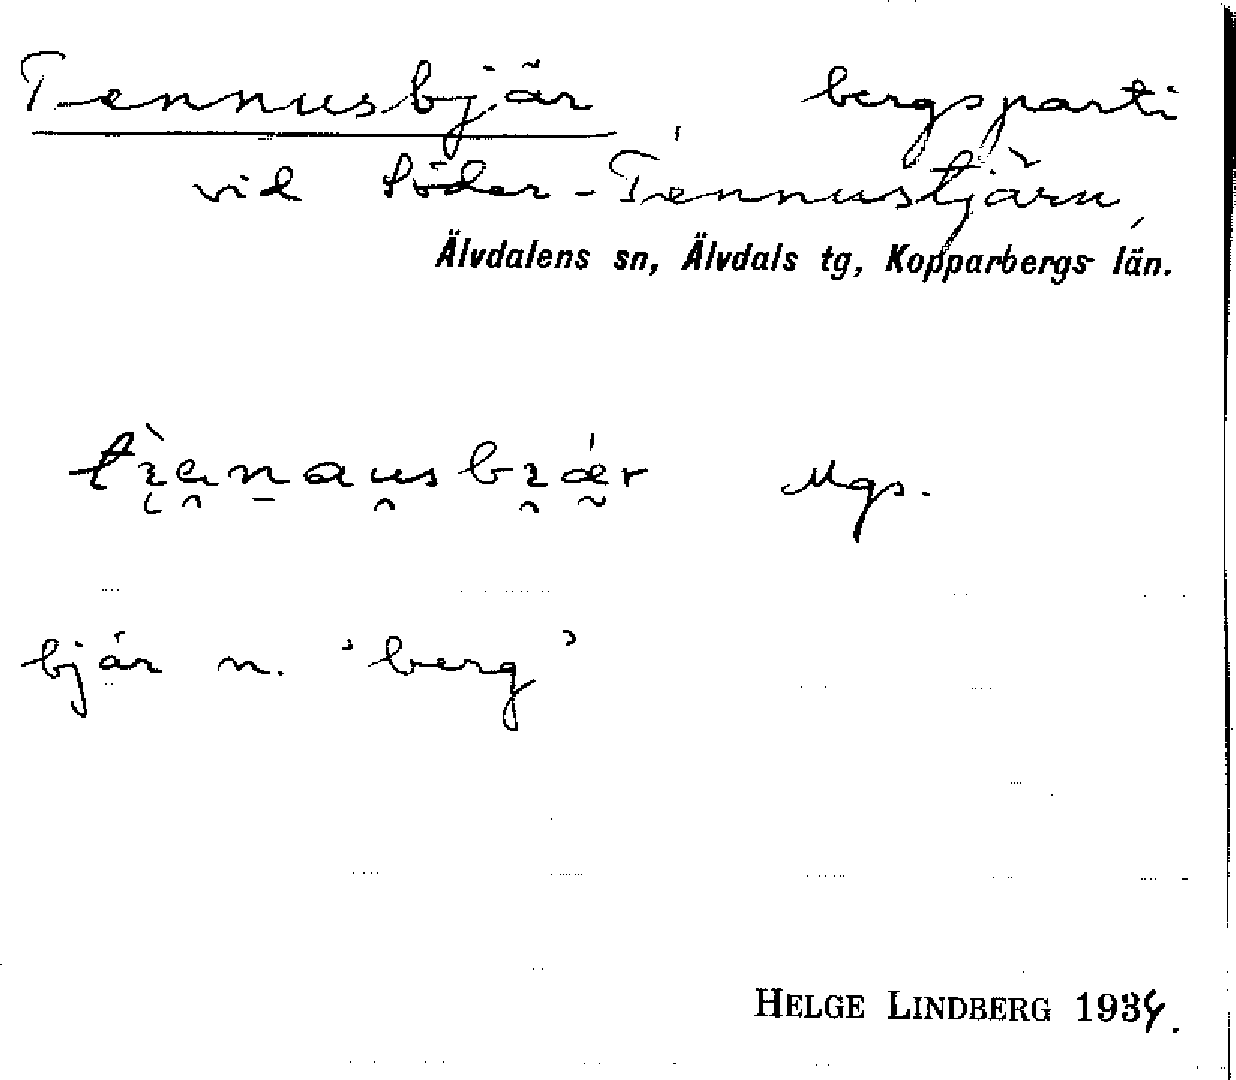 Tennusbjär bergsparti
vid Söder-Tennustjärn,
Älvdalens sn, Älvdals tg, Kopparbergs län.
Mgs.
bjär n. 'berg'
HELGE LINDBERG 1934.